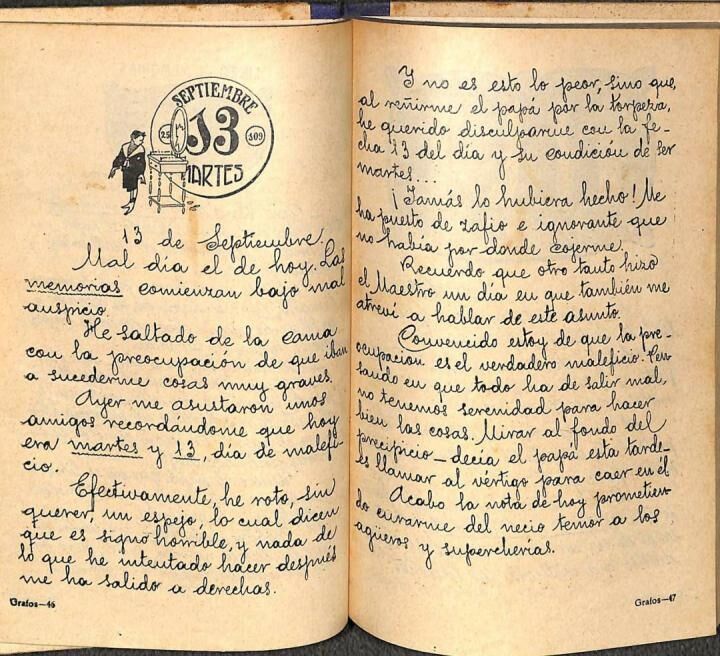 SEPTIEMBRE
25 13 509
MARTES
13 de Septiembre.
Mal día el de hoy. Las
memorias comienzan bajo mal
auspicio.
He saltado de la cama
con la preocupación de que iban
a sucederme cosas muy graves.
Ayer me asustaron unos
amigos recordándome que hoy
era martes y 13, día de malefi-
cio.
Efectivamente, he roto, sin
querer, un espejo, lo cual dicen
que es signo horrible, y nada de
lo que he intentado hacer después
me ha salido a derechas.
Grafos—46
Y no es esto lo peor, sino que,
al reñirme el papá por la torpeza,
he querido disculparme con la fe-
cha 13 del día y su condición de ser
martes...
¡Jamás lo hubiera hecho! Me
ha puesto de zafio e ignorante que
no había por donde cojerme.
Recuerdo que otro tanto hizo
el Maestro un día en que también me
atreví a hablar de este asunto.
Convencido estoy de que la pre-
ocupación es el verdadero maleficio. Pen-
sando en que todo ha de salir mal,
no tenemos serenidad para hacer
bien las cosas. Mirar al fondo del
precipicio—decía el papá esta tarde—
es llamar al vértigo para caer en él.
Acabo la nota de hoy prometien-
do curarme del necio temor a los
agüeros y supercherías.
Grafos—47